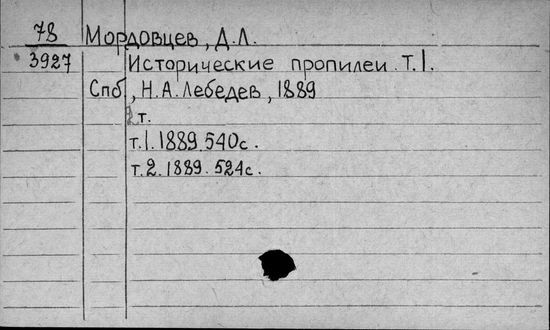 78 Мордовцев, Д.Л.
3927 Исторические пропилеи. Т.1.
Спб, Н.А.Лебедев, 1889
2 т.
т.1. 1889. 540с.
т.2. 1889. 524с.